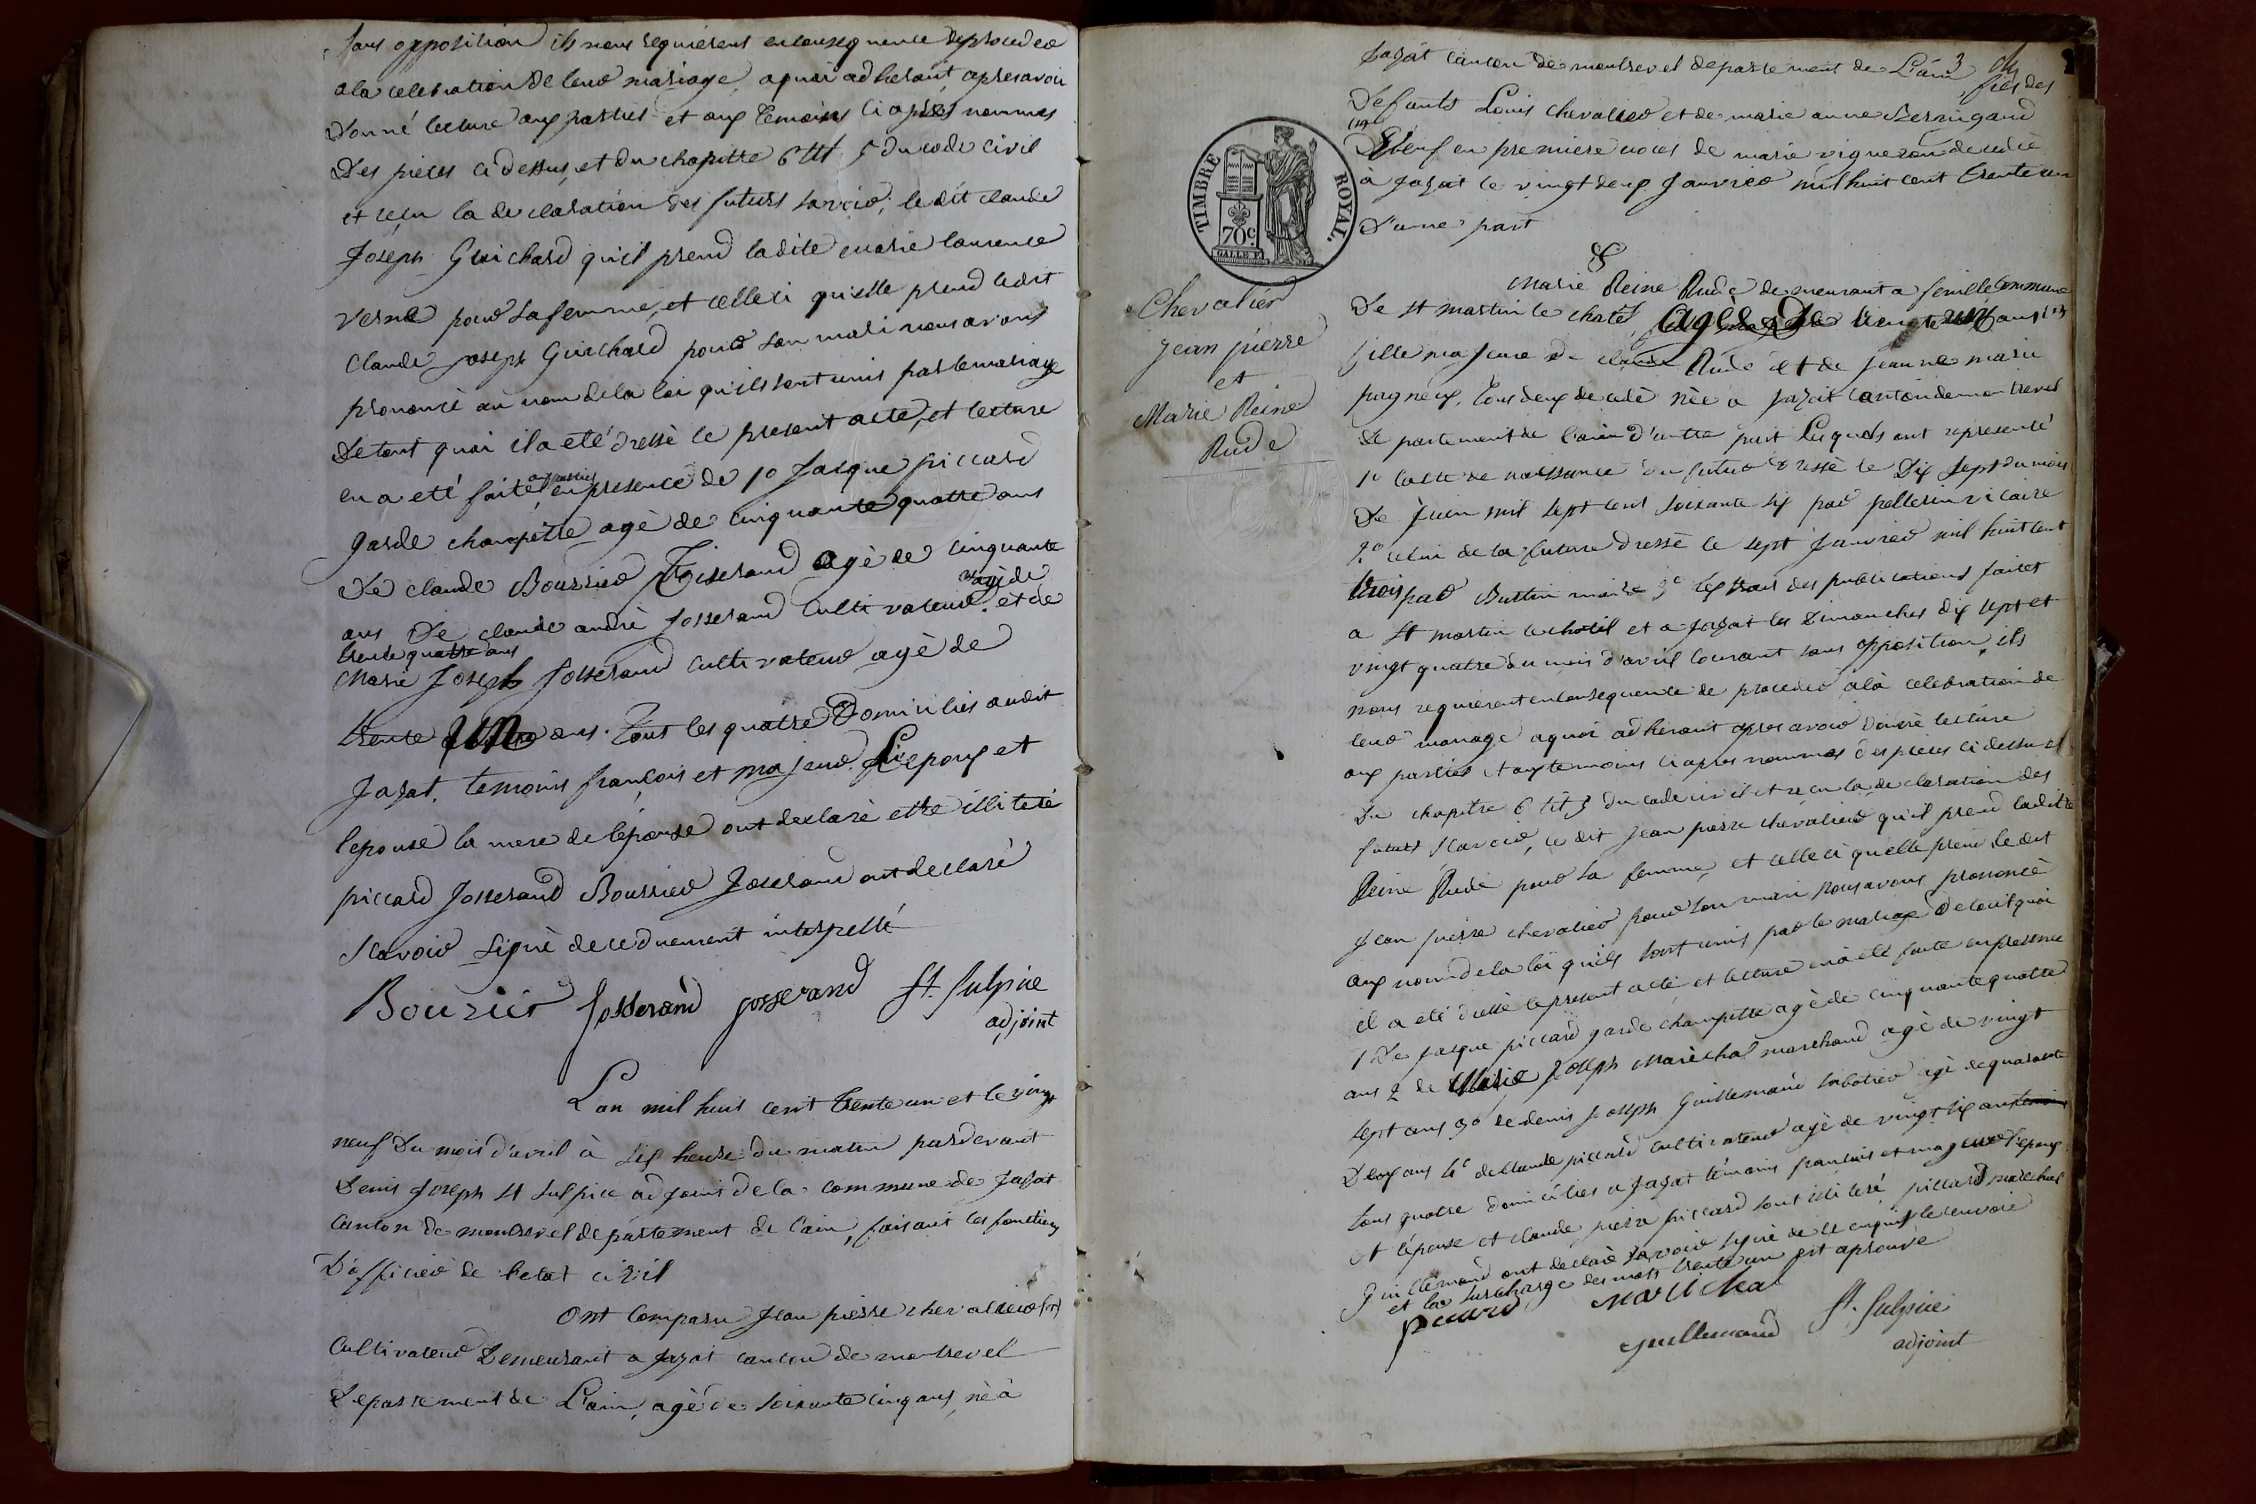 sans opposition ils nous requierent en consequence de proceder
a la celebration de leur mariage, a quoi adherant, apres avoir
donné lecture aux parties et aux temoins ci apres nommés
des pieces ci dessus, et du chapitre 6 tit 5 du code civil
et reçu la declaration des futurs savoir, le dit claude
Joseph Guichard qu'il prend la dite marie laurence
verne pour sa femme, et celle ci qu'elle prend le dit
Claude joseph Guichard pour son mari nous avons
prononcé au nom de la loi qu'ils sont unis par le mariage
De tout quoi il a eté dressé le present acte, et lecture
en a eté faite aux parties en presence de 1o Jacque piccard
garde champettre agé de cinquante quatre ans
de claude Bourrier Tisserand agé de cinquante
ans De claude andré Josserand Cultivateur agé de
trente quatre ans et de
Marie Joseph Josserand cultivateur agé de
trente un ans. Tout les quatre Domiciliés audit
Jayat. temoins françois et majeur. L'epoux et
l'epouse la mere de l'épouse ont declaré etre illiteré
piccard Josserand Bourrier Josserand ont declaré
scavoir signé de ce duement interpellé
Bourrier Josserand josserand St. Sulpice
adjoint
L'an mil huit cent trente un et le vingt
neuf Du mois d'avril à dix heure du matin pardevant
Denis Joseph St Sulpice adjoint de la commune de Jayat
Canton de montrevel departement de l'ain, faisant les fonctions
D'officier de l'etat civil
Ont comparu Jean pierre chevalier
Cultivateur Demeurant a Jayat canton de montrevel
Departement de L'ain, agé de soixante cinq ans, né à
3
Jayat canton de montrevel departement de L'ain, fils des
Defunts Louis chevalier et de marie anne
Veuf en premiere noces de marie vigneron decedée
à Jayat le vingt deux Janvier mil huit cent trente un
D'une part
TIMBRE ROYAL.
70c
&
Marie Reine Rude demeurant a commune
De St martin le chatel, agée De vingt huit ans
fille majeure de claude Rude et de jeanne marie
pugneux, tous deux decedé née a Jayat canton de montrevel
departement de l'ain D'autre part Lesquels ont representé
1o l'acte de naissance du futur dressé le Dix sept du mois
De Juin mil sept cent soixante six par pellerin vicaire
2o celui de la future dressé le sept Janvier mil huit cent
trois par Burtin maire 3o les extrais des publications faites
a St martin le chatel et a Jayat les Dimanches dix sept et
vingt quatre du mois d'avril courant sans opposition, ils
nous requierent en consequence de proceder a la celebration de
leur mariage a quoi adherant apres avoir donné lecture
aux parties et aux temoins ci apres nommés des pieces ci dessus et
Du chapitre 6 tit 5 du code civil et reçu la declaration des
futurs scavoir, le dit Jean pierre chevalier qu'il prend la dite
Reine Rude pour sa femme, et celle ci qu'elle prend le dit
Jean pierre chevalier pour son mari nous avons prononcé
aux nom de la loi qu'ils sont unis par le mariage De tout quoi
il a eté dressé le present acte, et lecture en a eté faite en presence
1 De Jacque piccard garde champettre agé de cinquante quatre
ans 2 de Marie Joseph Maréchal marchand agé de vingt
sept ans 3o de denis Joseph Guillemaud sabotier agé de quarante
Deux ans 4o de claude piccard cultivateur agé de vingt six ans
tous quatre domiciliés a Jayat témoins francais et majeur l'epoux
et l'épouse et claude pierre piccard sont illiteré piccard marechal
Guillemaud ont declaré scavoir signé de ce enquis le renvoie
et la surcharge des mots trente un est aprouvé
Piccard Marechal
guillemaud St. Sulpice
adjoint
Chevalier
jean pierre
et
Marie Reine
Rude